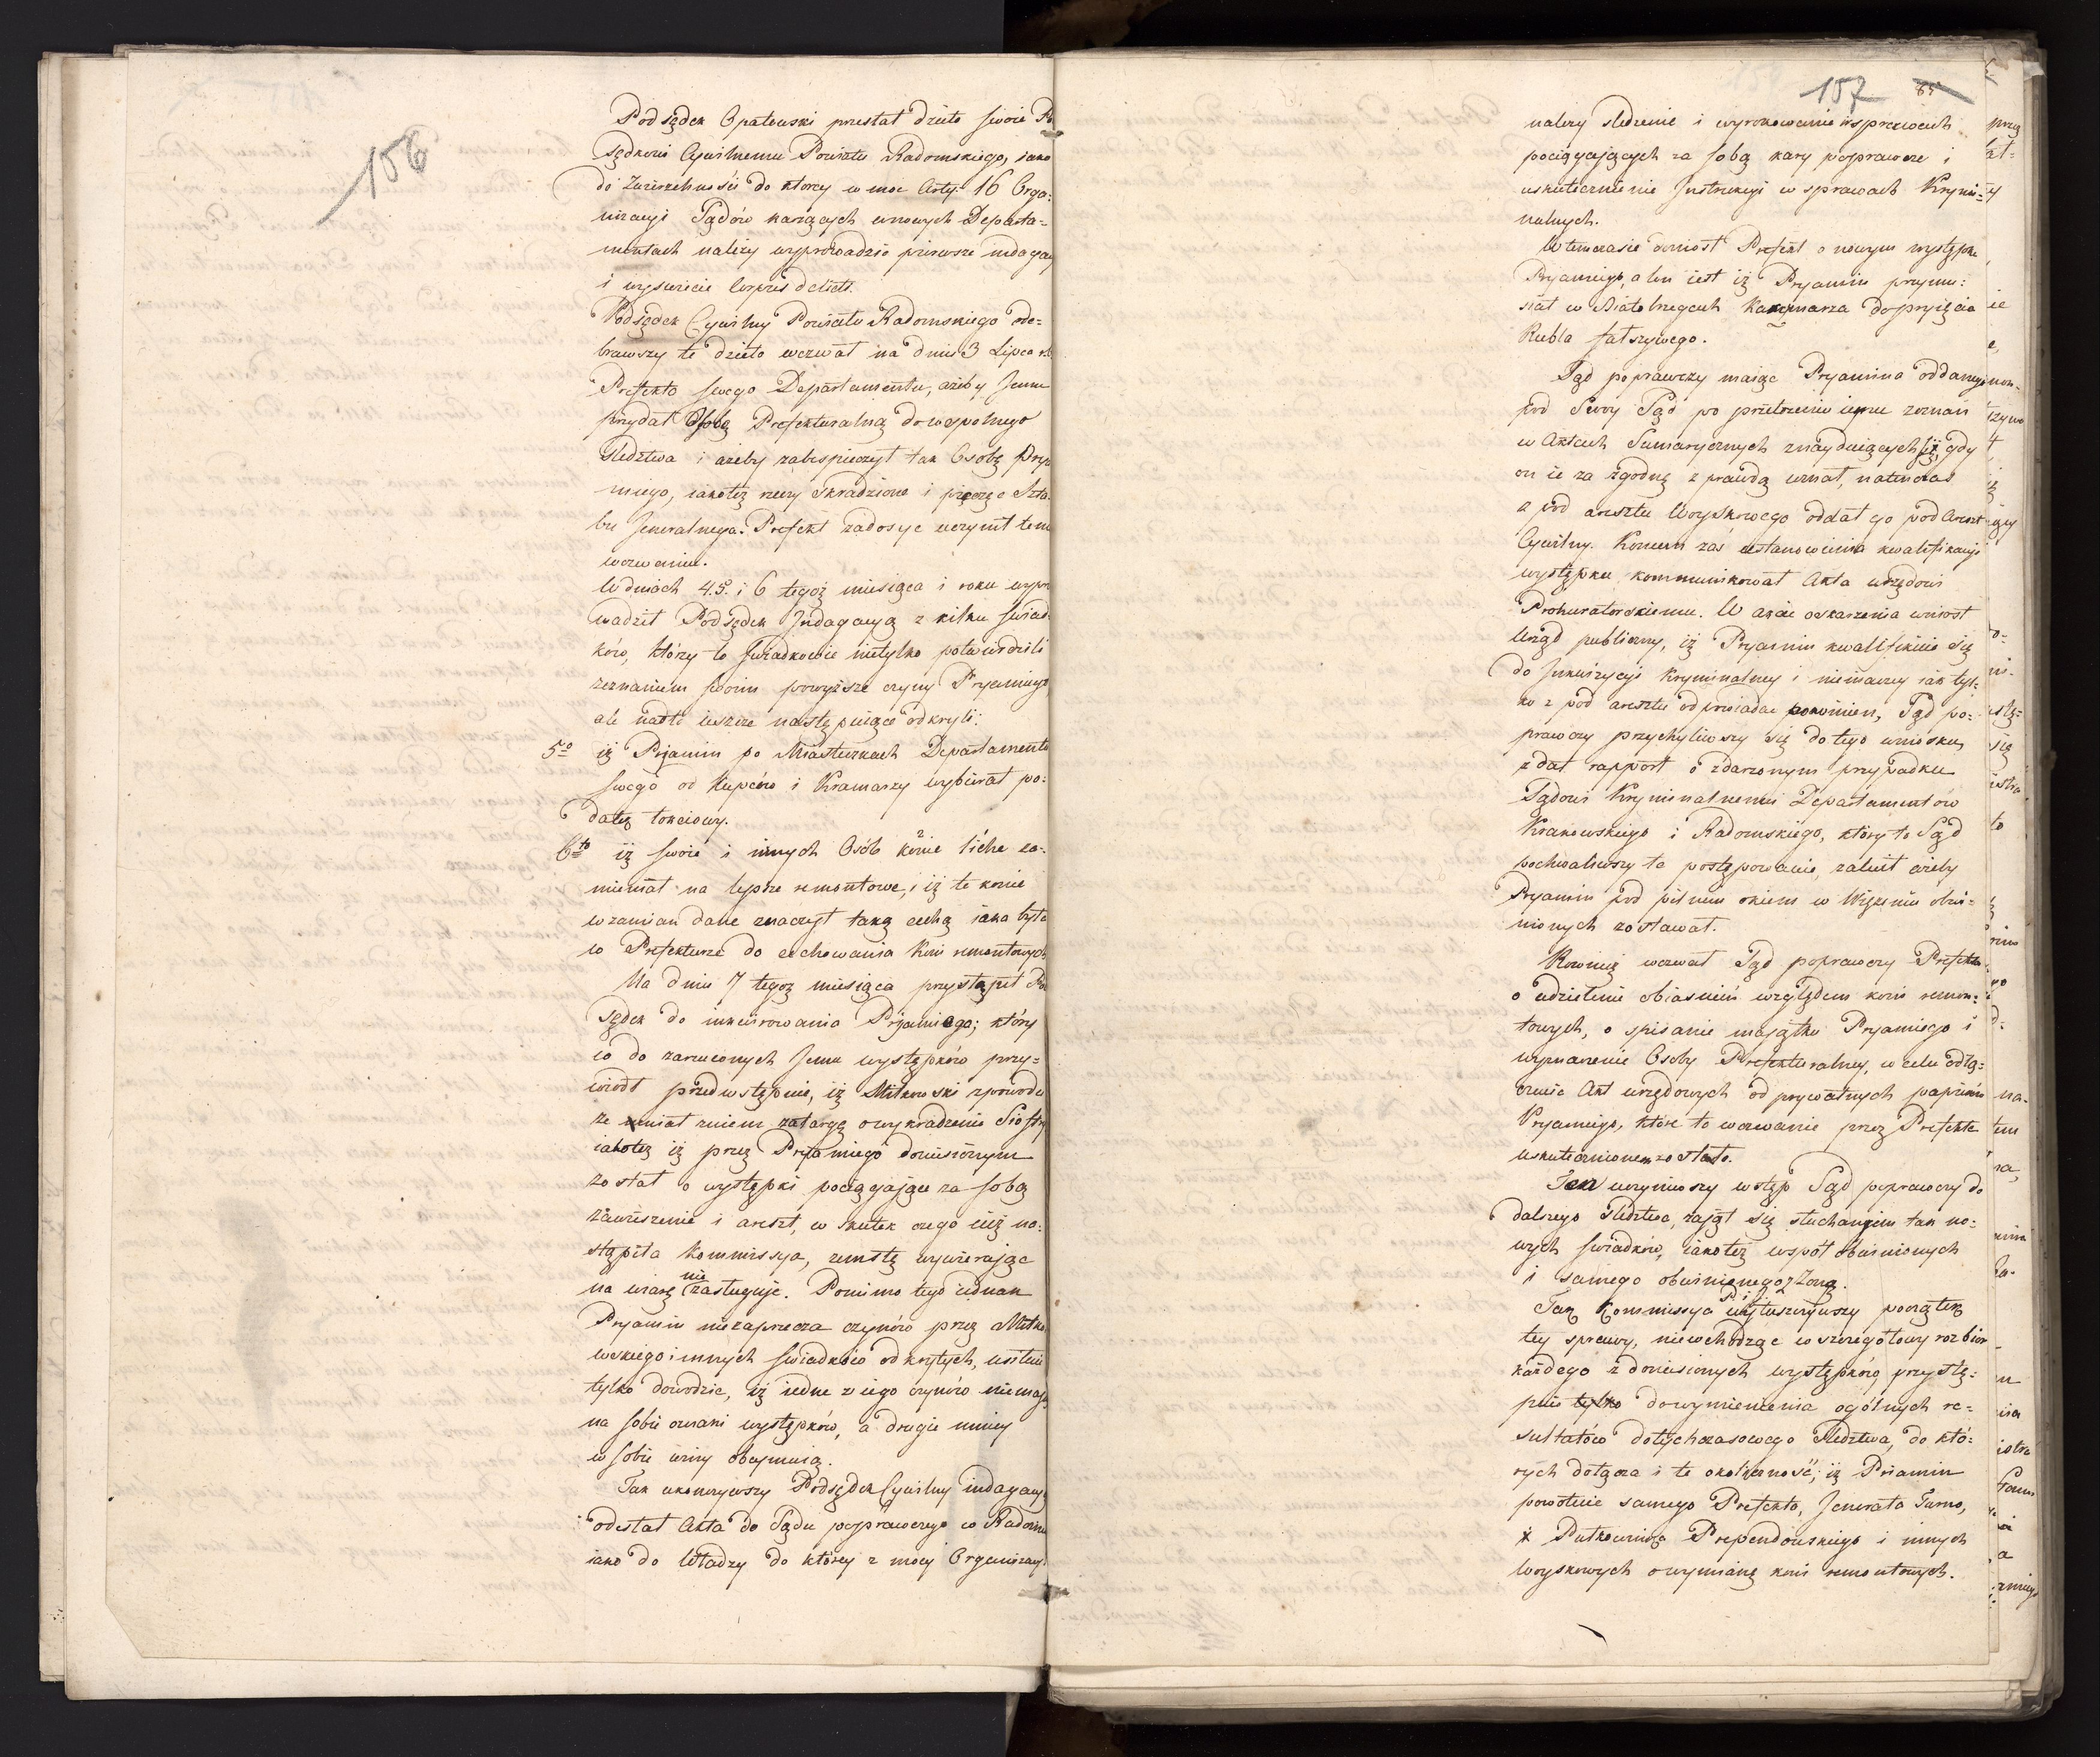 156
Podsędek Opatowski przesłał dzieło swoie Po
sędkowi Cywilnemu Powiatu Radomskiego, iako
do Zwierzchności do ktorey w moc Arty: 16 Orga:
nizacyi Sądów karzących w nowych Departa=
mentach należy wyprowadzić pierwsze indagacy
i wyśwecie Corpus delicti.
Podsędek Cywilny Powiatu Radomskiego ode=
brawszy te dzieło wezwał na dniu 3 Lipca rb
Prefekta swego Departamentu, ażeby Jemu
przydał Osobę Prefekturalną do wspolnego
Sledztwa i ażeby zabespieczył tak Osobę Prya
miego, iakoteż rzeczy skradzione i pieczęc Szta-
bu Jeneralnego. Prefekt zadosyc uczynił temu
wezwaniu.
W dniach 4. 5. i 6 tegoż miesiąca i roku wypro
wadził Podsędek Indagacyą z kilku swiad-
ków, którzy to swiadkowie nietylko potwierdzili
zeznaniem swoim powyższe czyny Pryamiego
ale nadto ieszcze następuiące odkryli:
5o iż Pryamin po Miasteczkach Departamentu
swego od Kupców i Kramarzy wybierał po=
datek łokciowy.
6to iż swoie i innych Osób konie liche za-
mieniał na lepsze remontowe, i iż te konie
wzamian dane znaczył taką cechą iaka była
w Prefekturze do cechowania koni remontowych
Na dniu 7 tegoż miesiąca przystąpił Po
Sędek do inkwirowania Pryamiego; który
co do zarzuconych Jemu występków przy=
wiódł przedwstępnie, iż Mitkowski z powodu
że miał zniem zatargę o wykradzenie Siostry
iakoteż iż przez Pryamiego doniesionym
został o występki pociągaiące za sobą
zawieszenie i areszt, w skutek czego iuż na=
stąpiła Kommissya, zemstę wywieraiąc
na wiarę nie zasługuje. Pomimo tego iednak
Pryamin niezaprzecza czynów przez Mitko
wskiego i innych swiadków odkrytych, usiłuie
tylko dowodzic, iż iedne z iego czynów niemaią
na sobie oznaki występków, a drugie mniey
w sobie winy obeymuią.
Tak ukonczywszy Podsędek Cywilny indagacy
odesłał Akta do Sądu poprawczego w Radomiu
iako do Władzy do którey z mocy Organizacyi
157 85
należy sledzenie i wyrokowanie w sprawach
pociągających za sobą kary poprawcze i
uskutecznienie Instrukcyi w sprawach Krymi=
nalnych.
W temczasie doniosł Prefekt o nowym występku
Pryamiego, a ten iest iż Pryamin przymu:
szał w Białobrzegach Kaxmarza do przyięcia
Rubla fałszywego.
Sąd poprawczy maiąc Pryamina oddanego
pod Swoy Sąd po przełożeniu iemu zeznań
w Aktach Sumarycznych znayduiących się, gdy
on ie za zgodne z prawdą uznał, natenczas
z pod aresztu Woyskowego oddał go pod Areszt
Cywilny. Koncem zaś ustanowienia kwalifikacyi
występku kommunikował Akta urzędowi
Prokuratorskiemu. W akcie oskarzenia wniosł
Urząd publiczny, iż Pryamin kwalifikuie się
do Inkwizycyi Kryminalney i nieinaczey iak tyl=
ko z pod aresztu odpowiadac powinien, Sąd po=
prawczy przychyliwszy się do tego wniosku
zdał rapport o zdarzonym przypadku
Sądowi Kryminalnemu Departamentów
Krakowskiego i Radomskiego, który to Sąd
pochwaliwszy to postępowanie, zalecił ażeby
Pryamin pod pilnem okiem w Więzieniu obwi=
nionych zostawał.
Rownież wezwał Sąd poprawczy Prefekta
o udzielenie obiasnień względem koni remon=
towych, o spisanie maiątku Pryamiego i
wyznaczenie Osoby Prefekturalney, w celu odłą=
czenia Akt urzędowych od prywatnych papierów
Pryamiego, które to wezwanie przez Prefekta
uskutecznionem zostało.
Ten uczyniwszy wstęp Sąd poprawczy do
dalszego sledztwa, zajął się słuchaniem tak no=
wych swiadków, iakoteż wspól obwinionych
i samego obwinionego z Żoną.
Tak Kommissya wyłuszczywszy początek
tey sprawy, niewchodząc w szczegółowy rozbior
każdego z doniesionych występków, przystę=
puie tylko do wymienienia ogólnych re=
sultatów dotychczasowego Sledztwa, do któ=
rych dołącza i te okoliczność, iż Priamin
powołuie samego Prefekta, Jenerała Turno,
i Pułkownika Prependowskiego i innych
Woyskowych o wymianę koni remontowych.